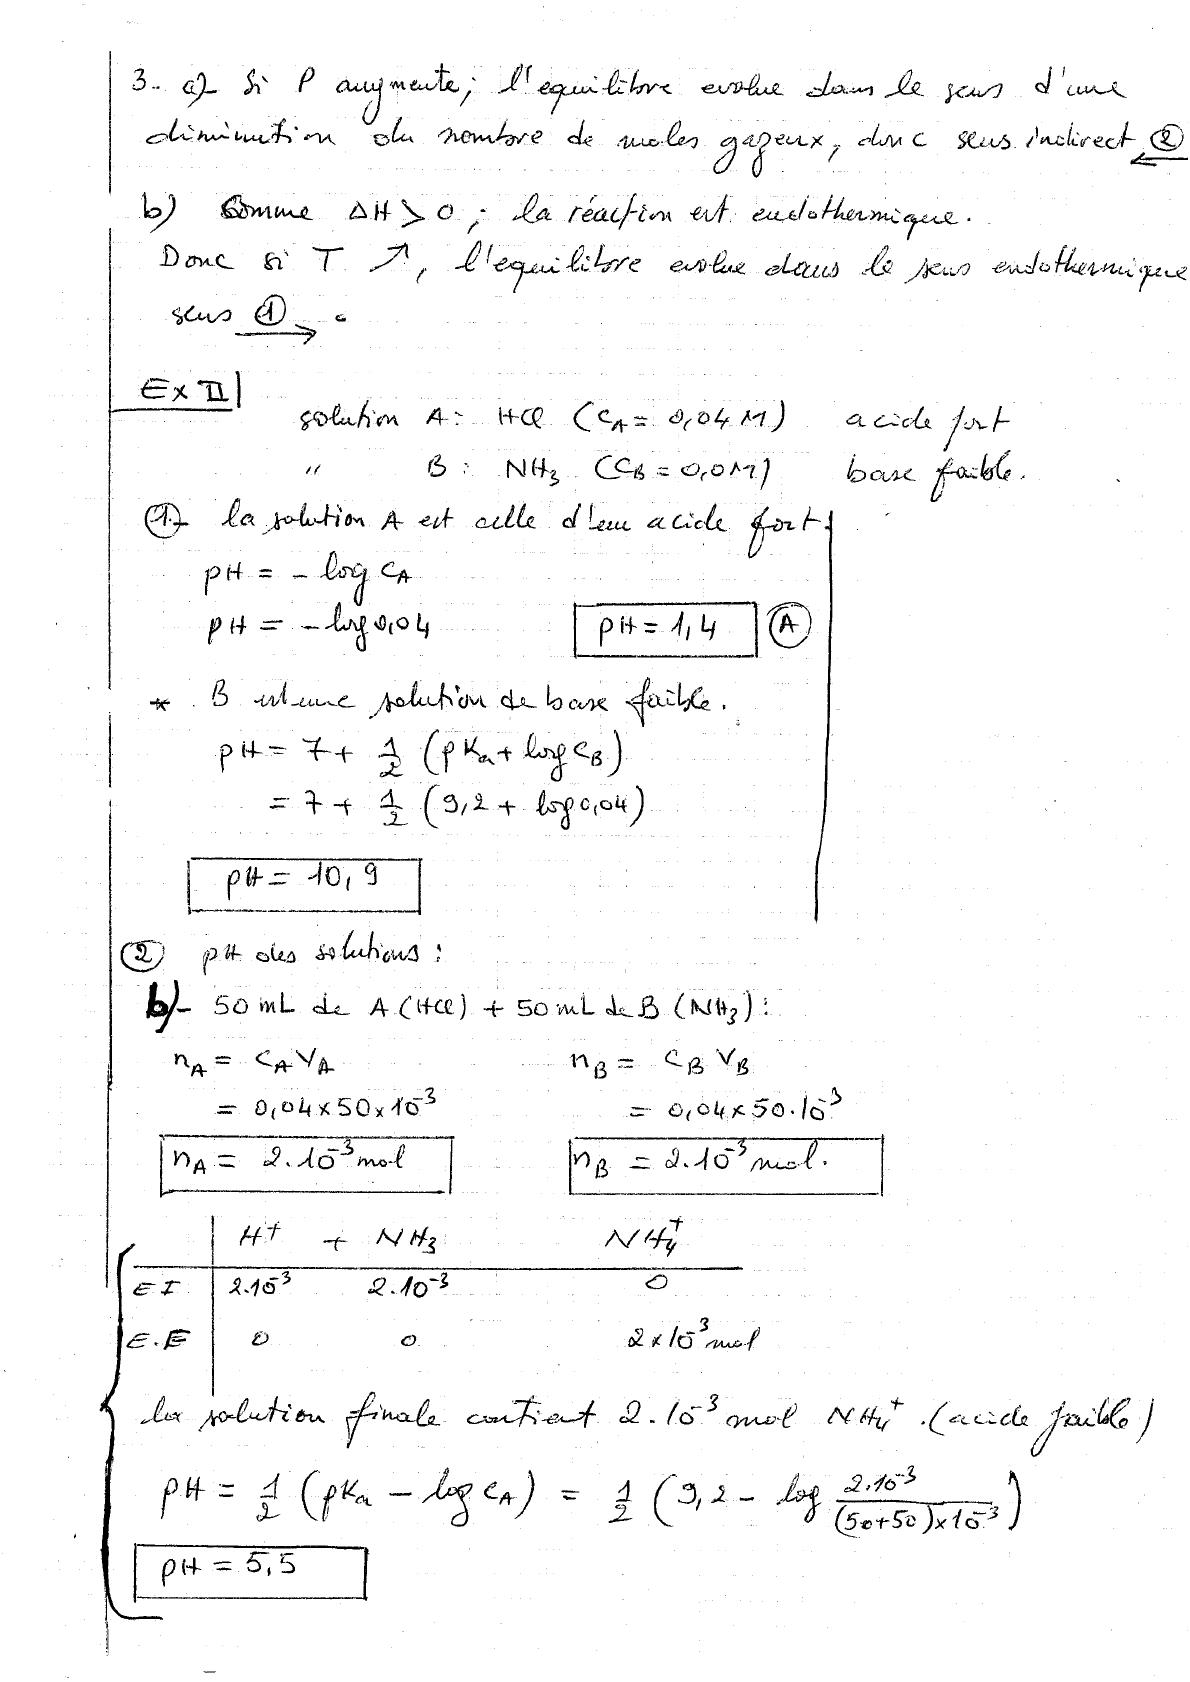 3. a)- Si P augmente, l'equilibre evolue dans le sens d'une
diminution du nombre de moles gazeux, donc sens indirect ②
←
b) Comme ΔH > 0, la réaction est endothermique.
Donc si T ↗, l'equilibre evolue dans le sens endothermique
sens ① → .
Ex II
solution A: HCl (CA = 0,04 M) acide fort
" B: NH3 (CB = 0,0M) base faible.
①- la solution A est celle d'un acide fort.
pH = - log CA
pH = - log 0,04 pH = 1,4 Ⓐ
* B est une solution de base faible.
pH = 7 + 1/2 (pKa + log CB)
= 7 + 1/2 (9,2 + log 0,04)
pH = 10,9
② pH des solutions :
b)- 50 mL de A (HCl) + 50 mL de B (NH3) :
nA = CA VA nB = CB VB
= 0,04 x 50 x 10^-3 = 0,04 x 50.10^-3
nA = 2.10^-3 mol nB = 2.10^-3 mol.
H+ + NH3 NH4+
E I 2.10^-3 2.10^-3 0
E.E 0 0 2 x 10^-3 mol
la solution finale contient 2.10^-3 mol NH4+. (acide faible)
pH = 1/2 (pKa - log CA) = 1/2 (9,2 - log 2.10^-3/(50+50)x10^-3)
pH = 5,5